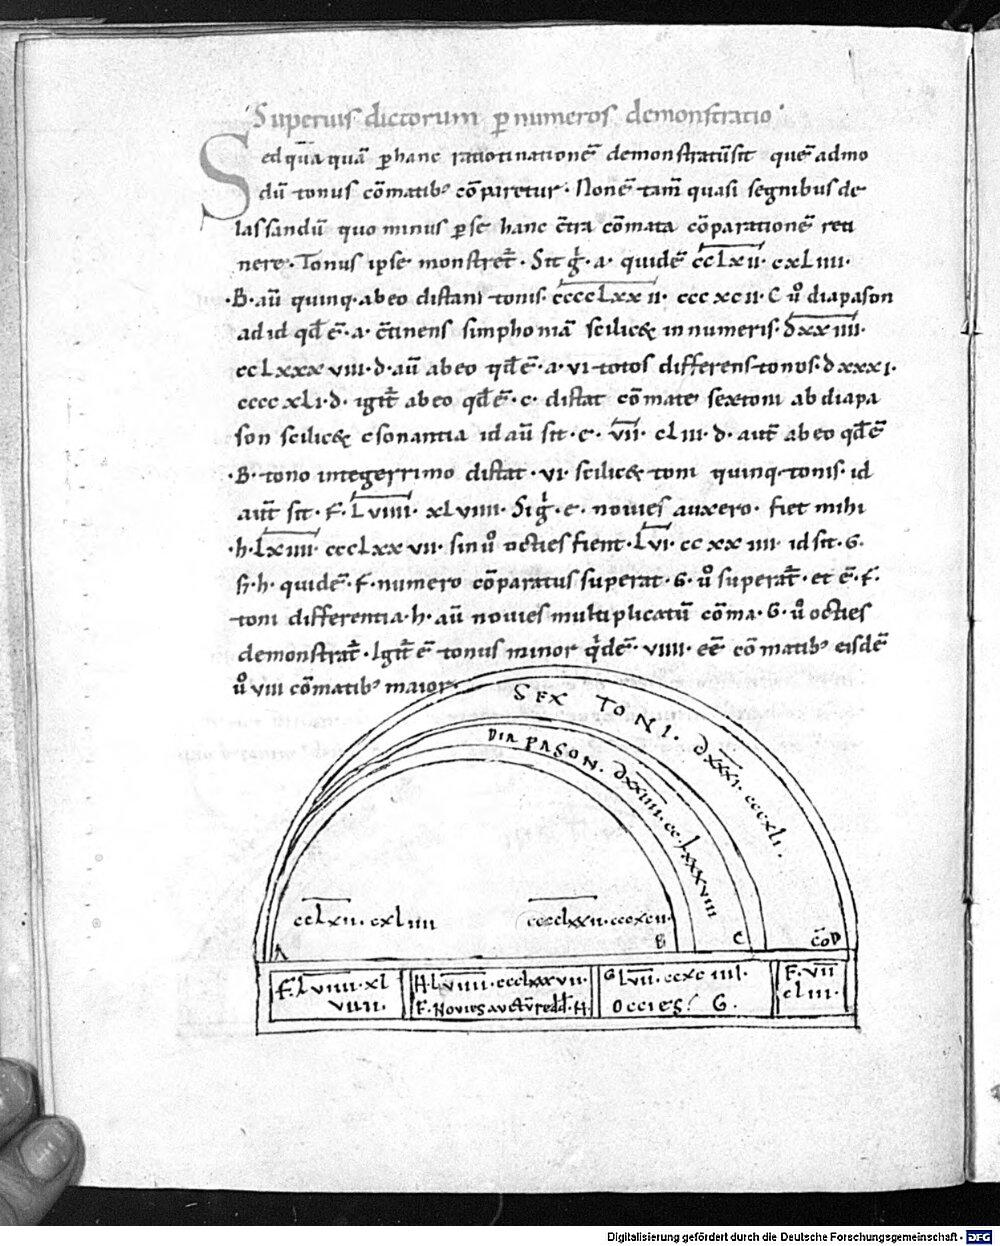 Superius dictorum p̄ numeros demonstratio
Sed qm̄a quā p̄ hanc ratiotinationē demonstratū sit quē admo
dū tonus cōmatib; cōparetur. Non ē tam̄ quasi segnibus de
lassandū quo minus p̄ se hanc c̄tra cōmata cōparationē reti
nere. Tonus ipse monstret̄. Sit g̓. a. quidē cclxii. cxliiii.
.B. aū quinq. ab eo distans tonis. cccclxxii. cccxcii. C ū diapason
ad id qđ ē. a. c̄tinens simphoniā scilic& in numeris. dxxiiii.
cclxxxviii. d. aū ab eo qđ ē. a. vi totos differens tonos. dxxxi.
ccccxli. d. igit̄ ab eo qđ ē. c. distat cōmate sex toni ab diapa
son scilic& c̄sonantia id aū sit. e. vii. cliii. d. aut̄ ab eo qđ ē
.B. tono integerrimo distat. vi. scilic& toni quinq. tonis. id
aut̄ sit. f. lviiii. xlviiii. Si g̓. e. novies auxero. fiet mihi
.h. lxiiii. ccclxxvii. sin ū octies fient. lvi. ccxxiiii. id sit. G.
S; h. quidē. f. numero cōparatus superat. G. ū superat̄. et ē. f.
toni differentia. h. aū novies multiplicatū cōma. G. ū octies
demonstrat̄. Igit̄ ē tonus minor q̓dē. viiii. eē cōmatib; eisdē
ū viii cōmatib; maior.
SEX TONI. dxxxi. cccxli.
DIA PASON. dxxiiii. cc. lxxxviii
cclxii. cxliiii
cccclxxii. cccxcii.
A
B
C
cōD
F. lviiii. xl
viiii.
H. lviiii. ccclxxvii.
F. Novies auctū redd. H.
G lvii. ccxciiii.
Occies. G.
F. vii
cliii.
Digitalisierung gefördert durch die Deutsche Forschungsgemeinschaft - DFG